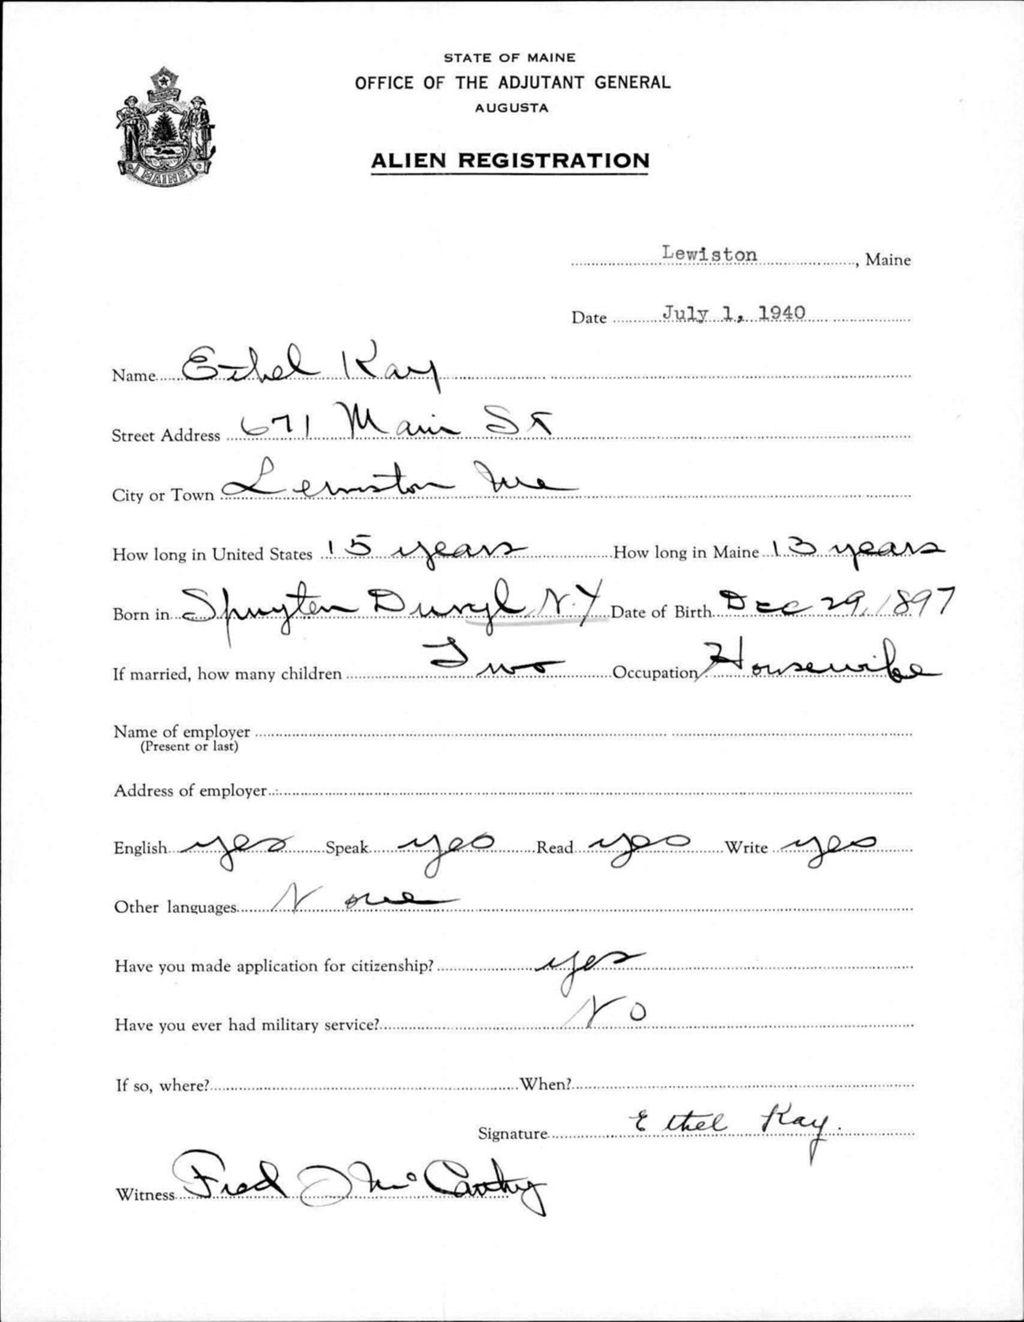 STATE OF MAINE
OFFICE OF THE ADJUTANT GENERAL
AUGUSTA
MAINE
ALIEN REGISTRATION
Lewiston, Maine
Date July 1, 1940
Name Ethel Kay
Street Address 671 Main St
City or Town Lewiston Me
How long in United States 15 years How long in Maine 13 years
Born in Spuyten Duvyl N.Y Date of Birth Dec 29, 1897
If married, how many children Two Occupation Housewife
Name of employer
(Present or last)
Address of employer
English yes Speak yes Read yes Write yes
Other languages None
Have you made application for citizenship? yes
Have you ever had military service? No
If so, where? When?
Signature Ethel Kay.
Witness Fred J McCarthy